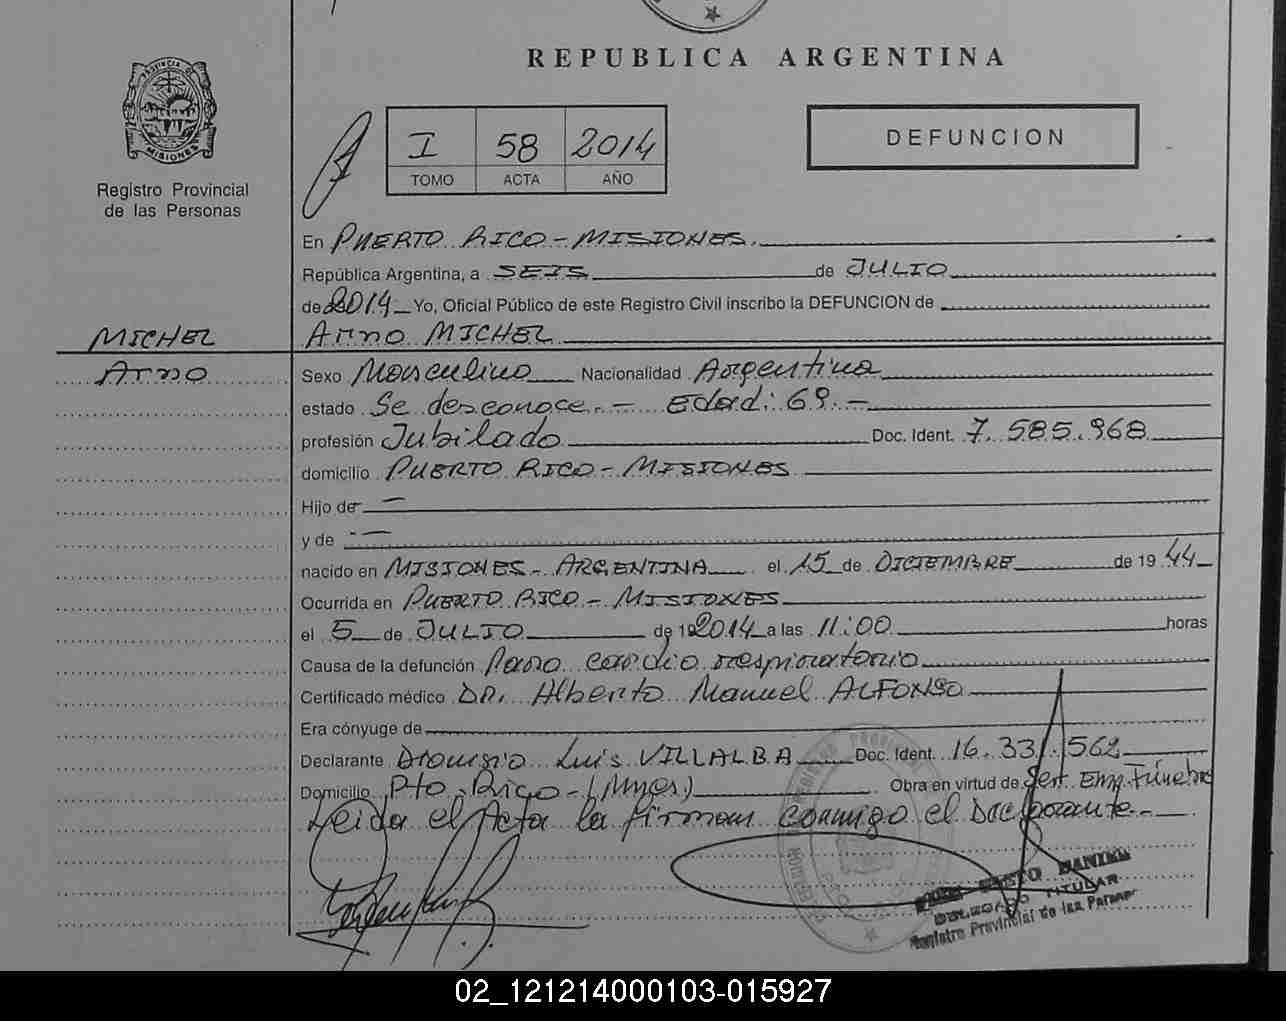 REPUBLICA ARGENTINA
PROVINCIA DE
MISIONES
Registro Provincial
de las Personas
I 58 2014
TOMO ACTA AÑO
DEFUNCION
En PUERTO RICO - MISIONES.
República Argentina, a SEIS de JULIO
de 2014 Yo, Oficial Público de este Registro Civil inscribo la DEFUNCION de
MICHEL
Arno MICHEL
Arno
Sexo Masculino Nacionalidad Argentina
estado Se desconoce. - Edad: 69. -
profesión Jubilado Doc. Ident. 7.585.968
domicilio PUERTO RICO - MISIONES
Hijo de —
y de —
nacido en MISIONES - ARGENTINA el 15 de DICIEMBRE de 1944
Ocurrida en PUERTO RICO - MISIONES
el 5 de JULIO de 192014 a las 11:00 horas
Causa de la defunción Paro cardio respiratorio
Certificado médico DR. Alberto Manuel ALFONSO
Era cónyuge de
Declarante Dionisio Luis VILLALBA Doc. Ident. 16.331.562
Domicilio Pto. Rico - (Mnes) Obra en virtud de Serv. Emp. Fúnebre
Leida el Acta la firman conmigo el Declarante. -
DANIEL
DELEGADO TITULAR
Registro Provincial de las Person
02_121214000103-015927